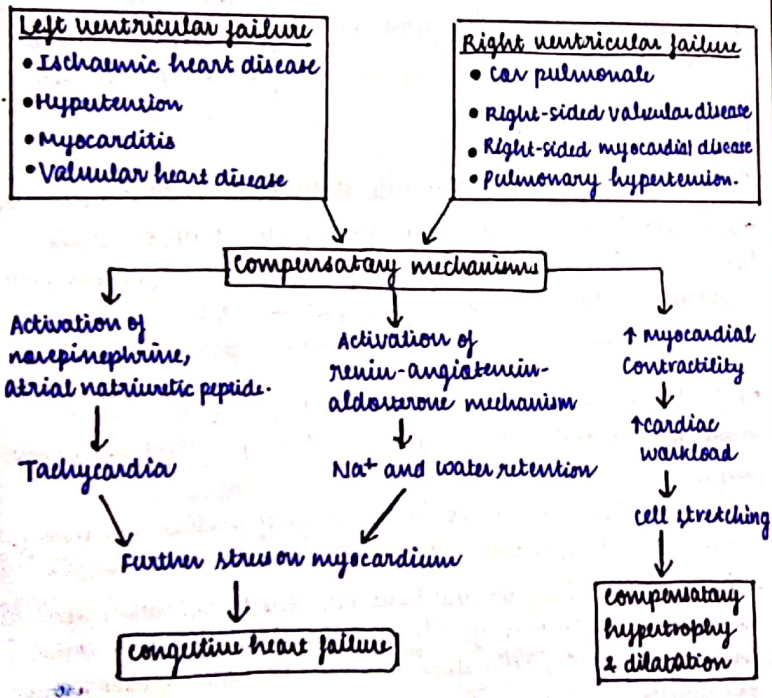 Left ventricular failure
• Ischaemic heart disease
• Hypertension
• Myocarditis
• Valvular heart disease
Right ventricular failure
• Cor pulmonale
• Right-sided valvular disease
• Right-sided myocardial disease
• Pulmonary hypertension.
Compensatory mechanisms
Activation of
norepinephrine,
atrial natriuretic peptide.
Tachycardia
Activation of
renin-angiotensin-
aldosterone mechanism
Na⁺ and water retention
Further stress on myocardium
Congestive heart failure
↑ Myocardial
contractility
↑ cardiac
workload
cell stretching
compensatory
hypertrophy
& dilatation